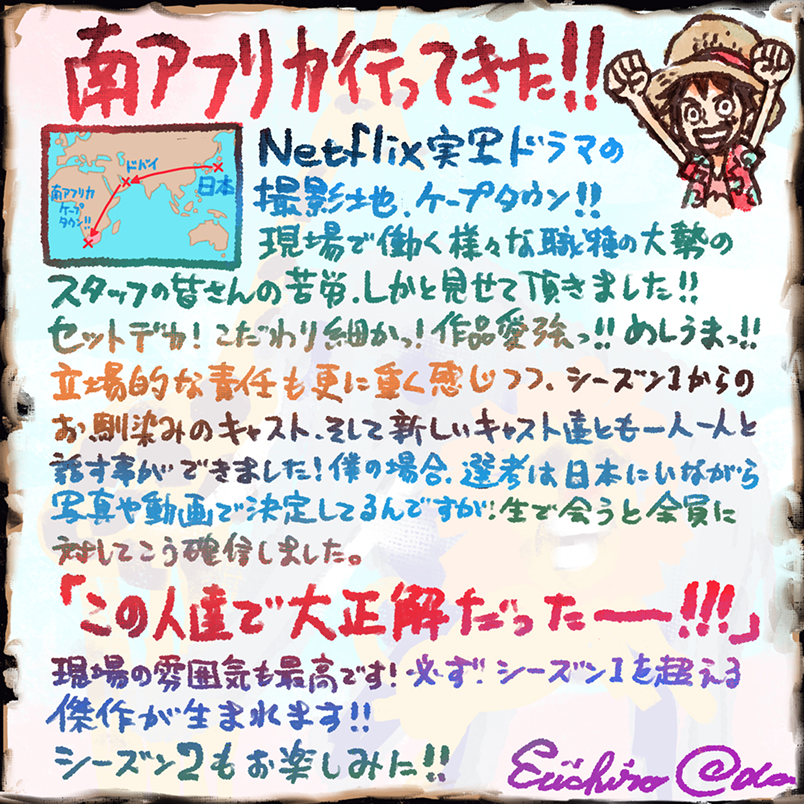 南アフリカ行ってきた!!
ドバイ
日本
南アフリカ
ケープ
タウン!!
Netflix実写ドラマの
撮影地、ケープタウン!!
現場で働く様々な職種の大勢の
スタッフの皆さんの苦労、しかと見せて頂きました!!
セットデカ!こだわり細かっ!作品愛強っ!!めしうまっ!!
立場的な責任も更に重く感じつつ、シーズン1からの
お馴染みのキャスト、そして新しいキャスト達とも一人一人と
話す事ができました!僕の場合、選考は日本にいながら
写真や動画で決定してるんですが!生で会うと全員に
対してこう確信しました。
「この人達で大正解だったー!!!」
現場の雰囲気も最高です!必ず!シーズン1を超える
傑作が生まれます!!
シーズン2もお楽しみに!!
Eiichiro Oda